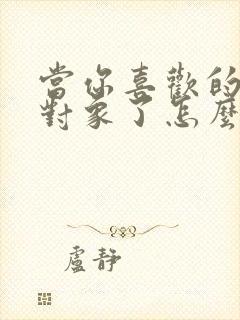 當你喜歡的
對象了怎麼
盧靜